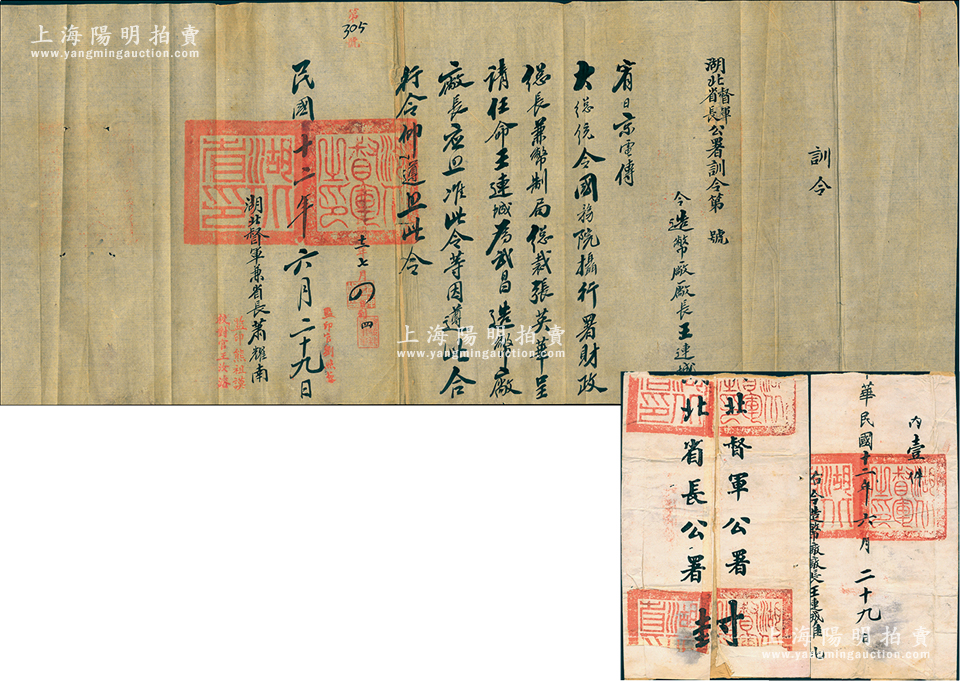 上海陽明拍賣
www.yangmingauction.com
第
305
號
訓令
湖北督軍省長公署訓令第 號
令造幣廠廠長王連城
省日京電傳
大總統令國務院攝行署財政
總長兼幣制局總裁張英華呈
請任命王連城為武昌造幣廠
廠長應照准此令等因遵此合
行令仰遵照此令
十二 七月
四
民國十二年六月二十九日
湖北督軍兼省長蕭耀南
湖北督軍之印
上海陽明拍賣
www.yangmingauction.com
內壹件
華民國十二年六月二十九日
右令造幣廠廠長王連城
北督軍公署
北省長公署
封
上海陽明拍賣
www.yangmingauction.com